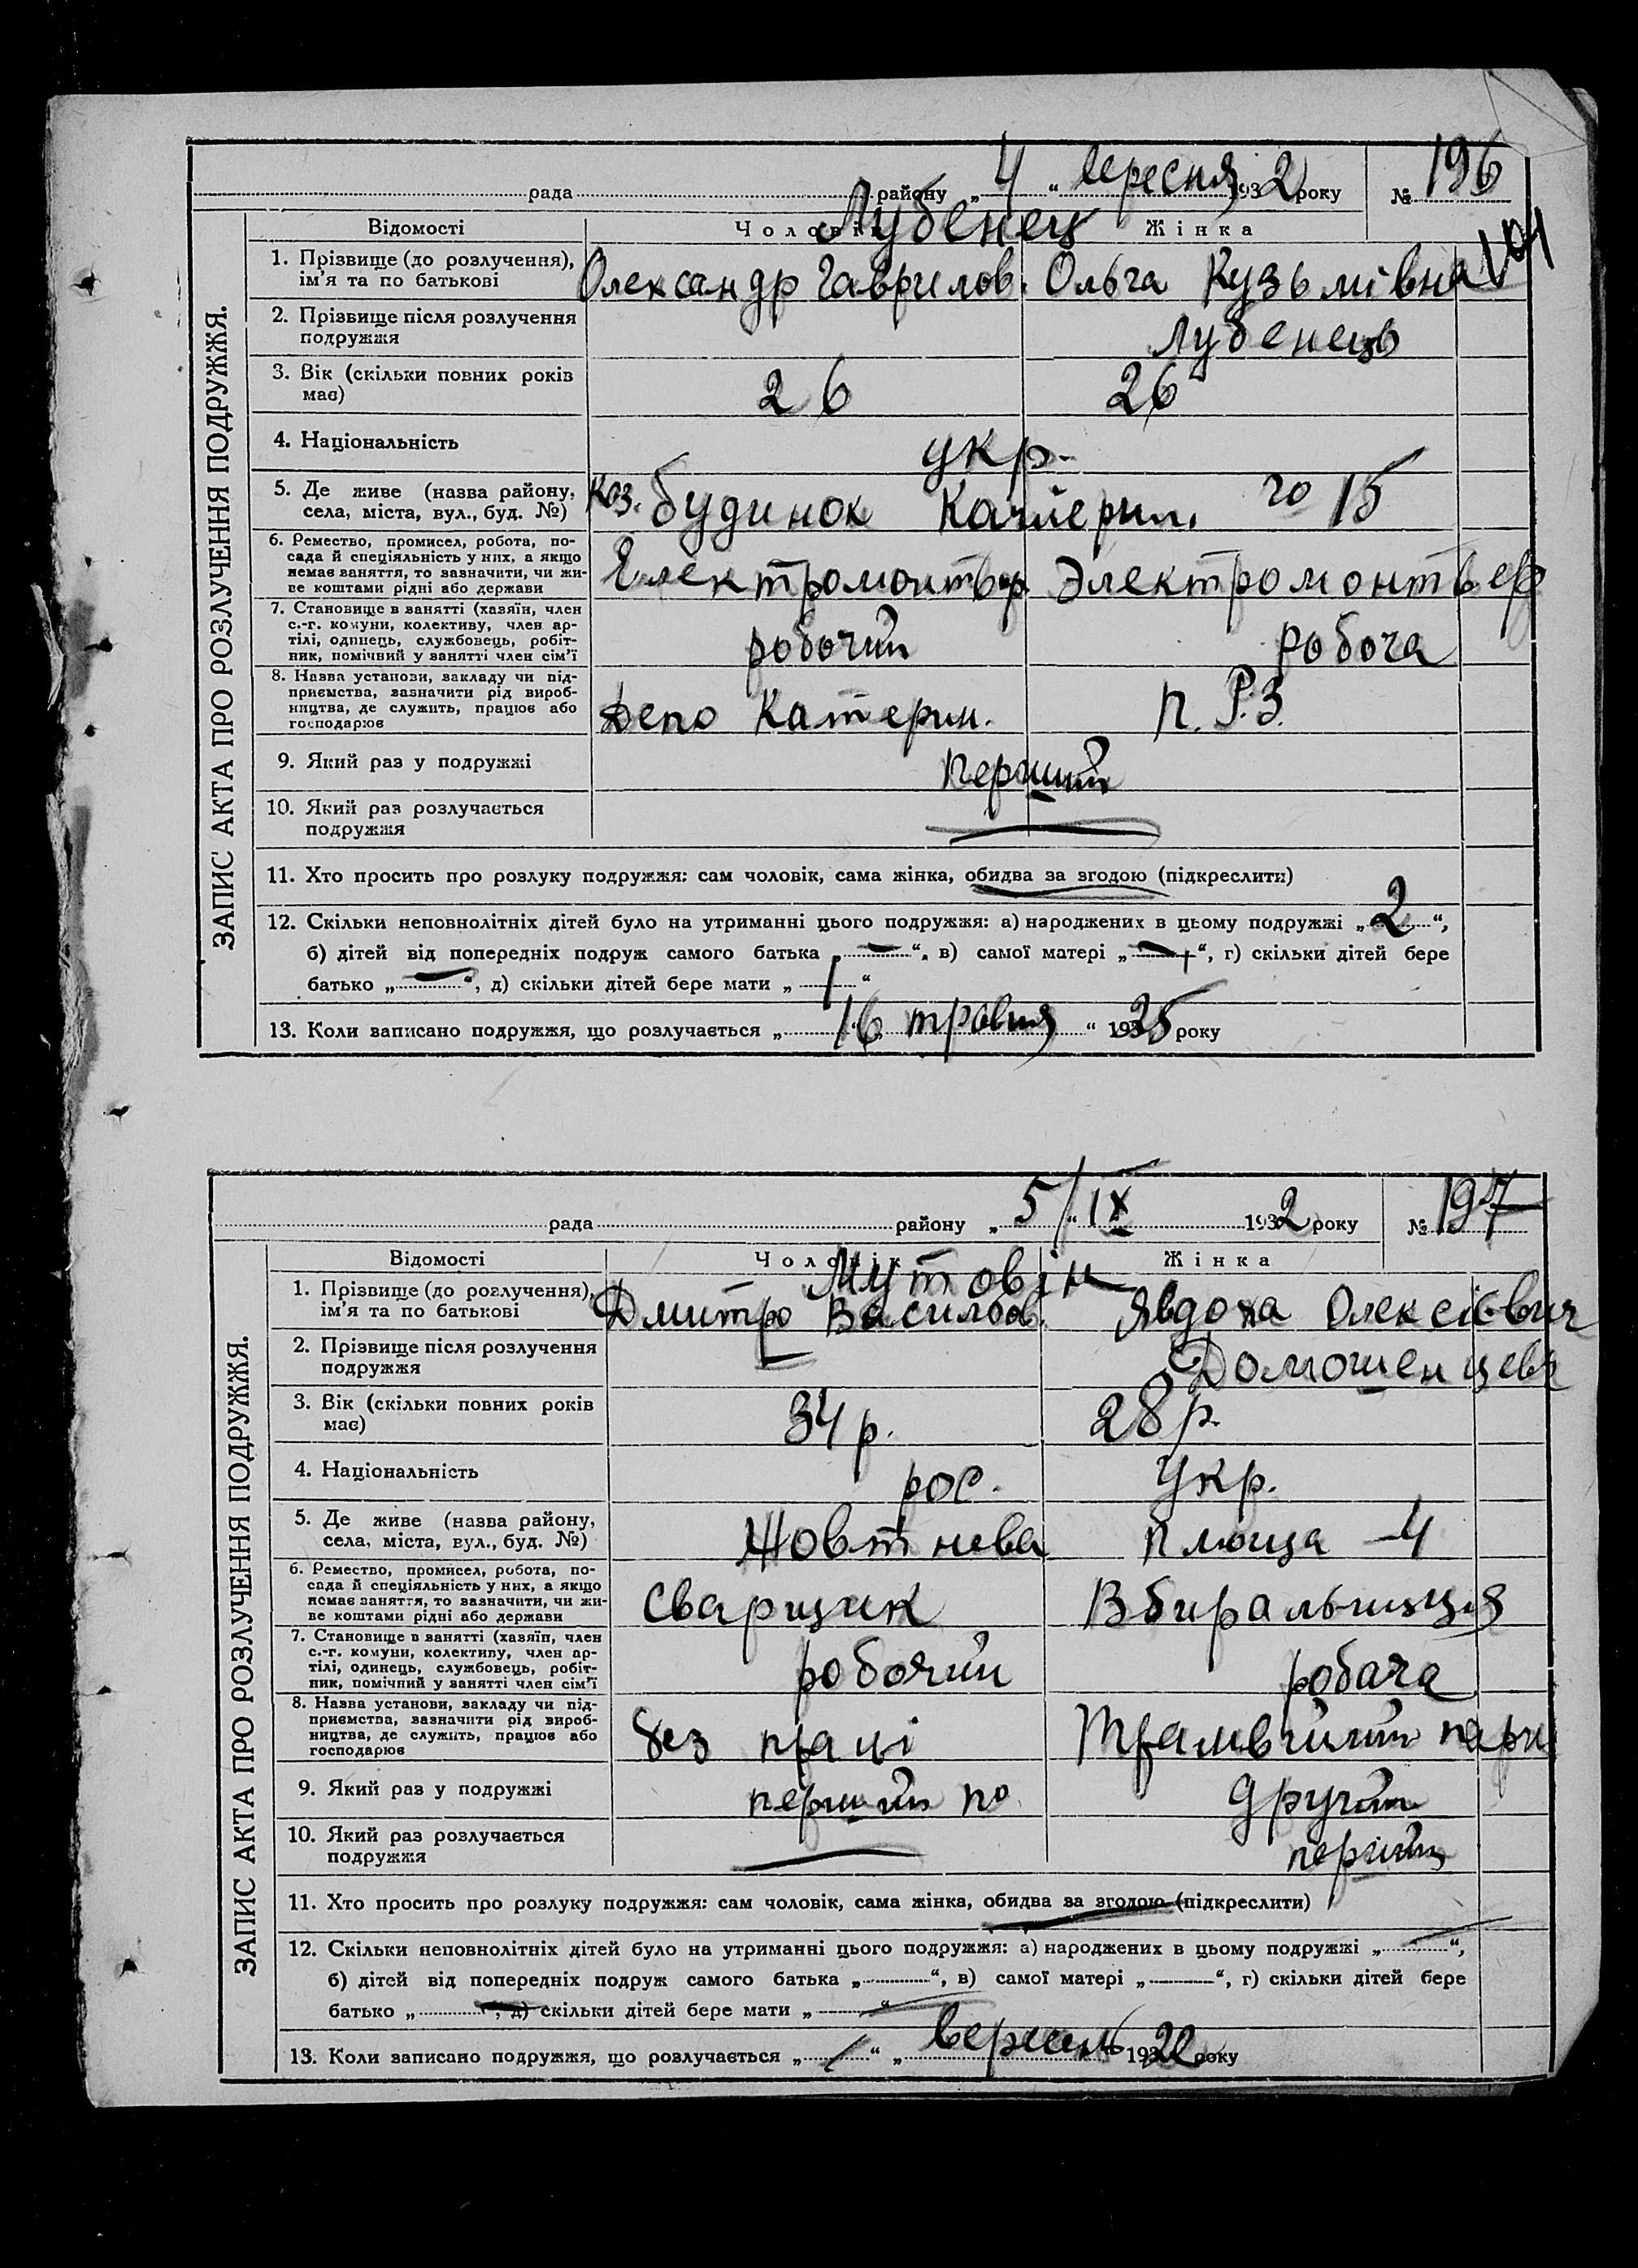 рада района „ 4 “ вересня 1932 року № 196
104
Відомості Чоловік Жінка
Лубенец
1. Прізвище (до розлучення), ім’я та по батькові Олександр Гаврилов. Ольга Кузьмівна
2. Прізвище після розлучення подружжя Лубенець
3. Вік (скільки повних років має) 26 26
4. Національність укр.
5. Де живе (назва району, села, міста, вул., буд. №) Каз. будинок Катерин. 15
6. Ремество, промисел, робота, посада й спеціяльність у них, а якщо немає заняття, то зазначити, чи живе коштами рідні або держави Електромонтьор Электромонтьер
7. Становище в занятті (хазяїн, член с.-г. комуни, колективу, член артілі, одинець, службовець, робітник, помічний у занятті член сім’ї робочий робоча
8. Назва установи, закладу чи підприємства, зазначити рід виробництва, де служить, працює або господарює Депо Катерин. П. Р. З.
9. Який раз у подружжі перший
10. Який раз розлучається подружжя —
11. Хто просить про розлуку подружжя: сам чоловік, сама жінка, обидва за згодою (підкреслити)
12. Скільки неповнолітніх дітей було на утриманні цього подружжя: а) народжених в цьому подружжі „ 2 “,
б) дітей від попередніх подруж самого батька „ — “, в) самої матері „ — “, г) скільки дітей бере
батько „ — “, д) скільки дітей бере мати „ “
13. Коли записано подружжя, що розлучається „ 16 травня “ 1925 року
ЗАПИС АКТА ПРО РОЗЛУЧЕННЯ ПОДРУЖЖЯ.
рада району „ 5/ “ IX 1932 року № 197
Відомості Чоловік Жінка
Мутовін
1. Прізвище (до розлучення), ім’я та по батькові Дмитро Василов. Явдоха Олексієвич
2. Прізвище після розлучення подружжя — Домошенцева
3. Вік (скільки повних років має) 34 р. 28 р.
4. Національність рос. Укр.
5. Де живе (назва району, села, міста, вул., буд. №) Жовтнева площа – 4
6. Ремество, промисел, робота, посада й спеціяльність у них, а якщо немає заняття, то зазначити, чи живе коштами рідні або держави Сварщик Вбиральниця
7. Становище в занятті (хазяїн, член с.-г. комуни, колективу, член артілі, одинець, службовець, робітник, помічний у занятті член сім’ї робочий робоча
8. Назва установи, закладу чи підприємства, зазначити рід виробництва, де служить, працює або господарює без праці парк
9. Який раз у подружжі перший другий
10. Який раз розлучається подружжя — перший
11. Хто просить про розлуку подружжя: сам чоловік, сама жінка, обидва за згодою (підкреслити)
12. Скільки неповнолітніх дітей було на утриманні цього подружжя: а) народжених в цьому подружжі „ — “,
б) дітей від попередніх подруж самого батька „ “, в) самої матері „ “, г) скільки дітей бере
батько „ — “, д) скільки дітей бере мати „ — “
13. Коли записано подружжя, що розлучається „ — “ „ вересень 1922 року
ЗАПИС АКТА ПРО РОЗЛУЧЕННЯ ПОДРУЖЖЯ.